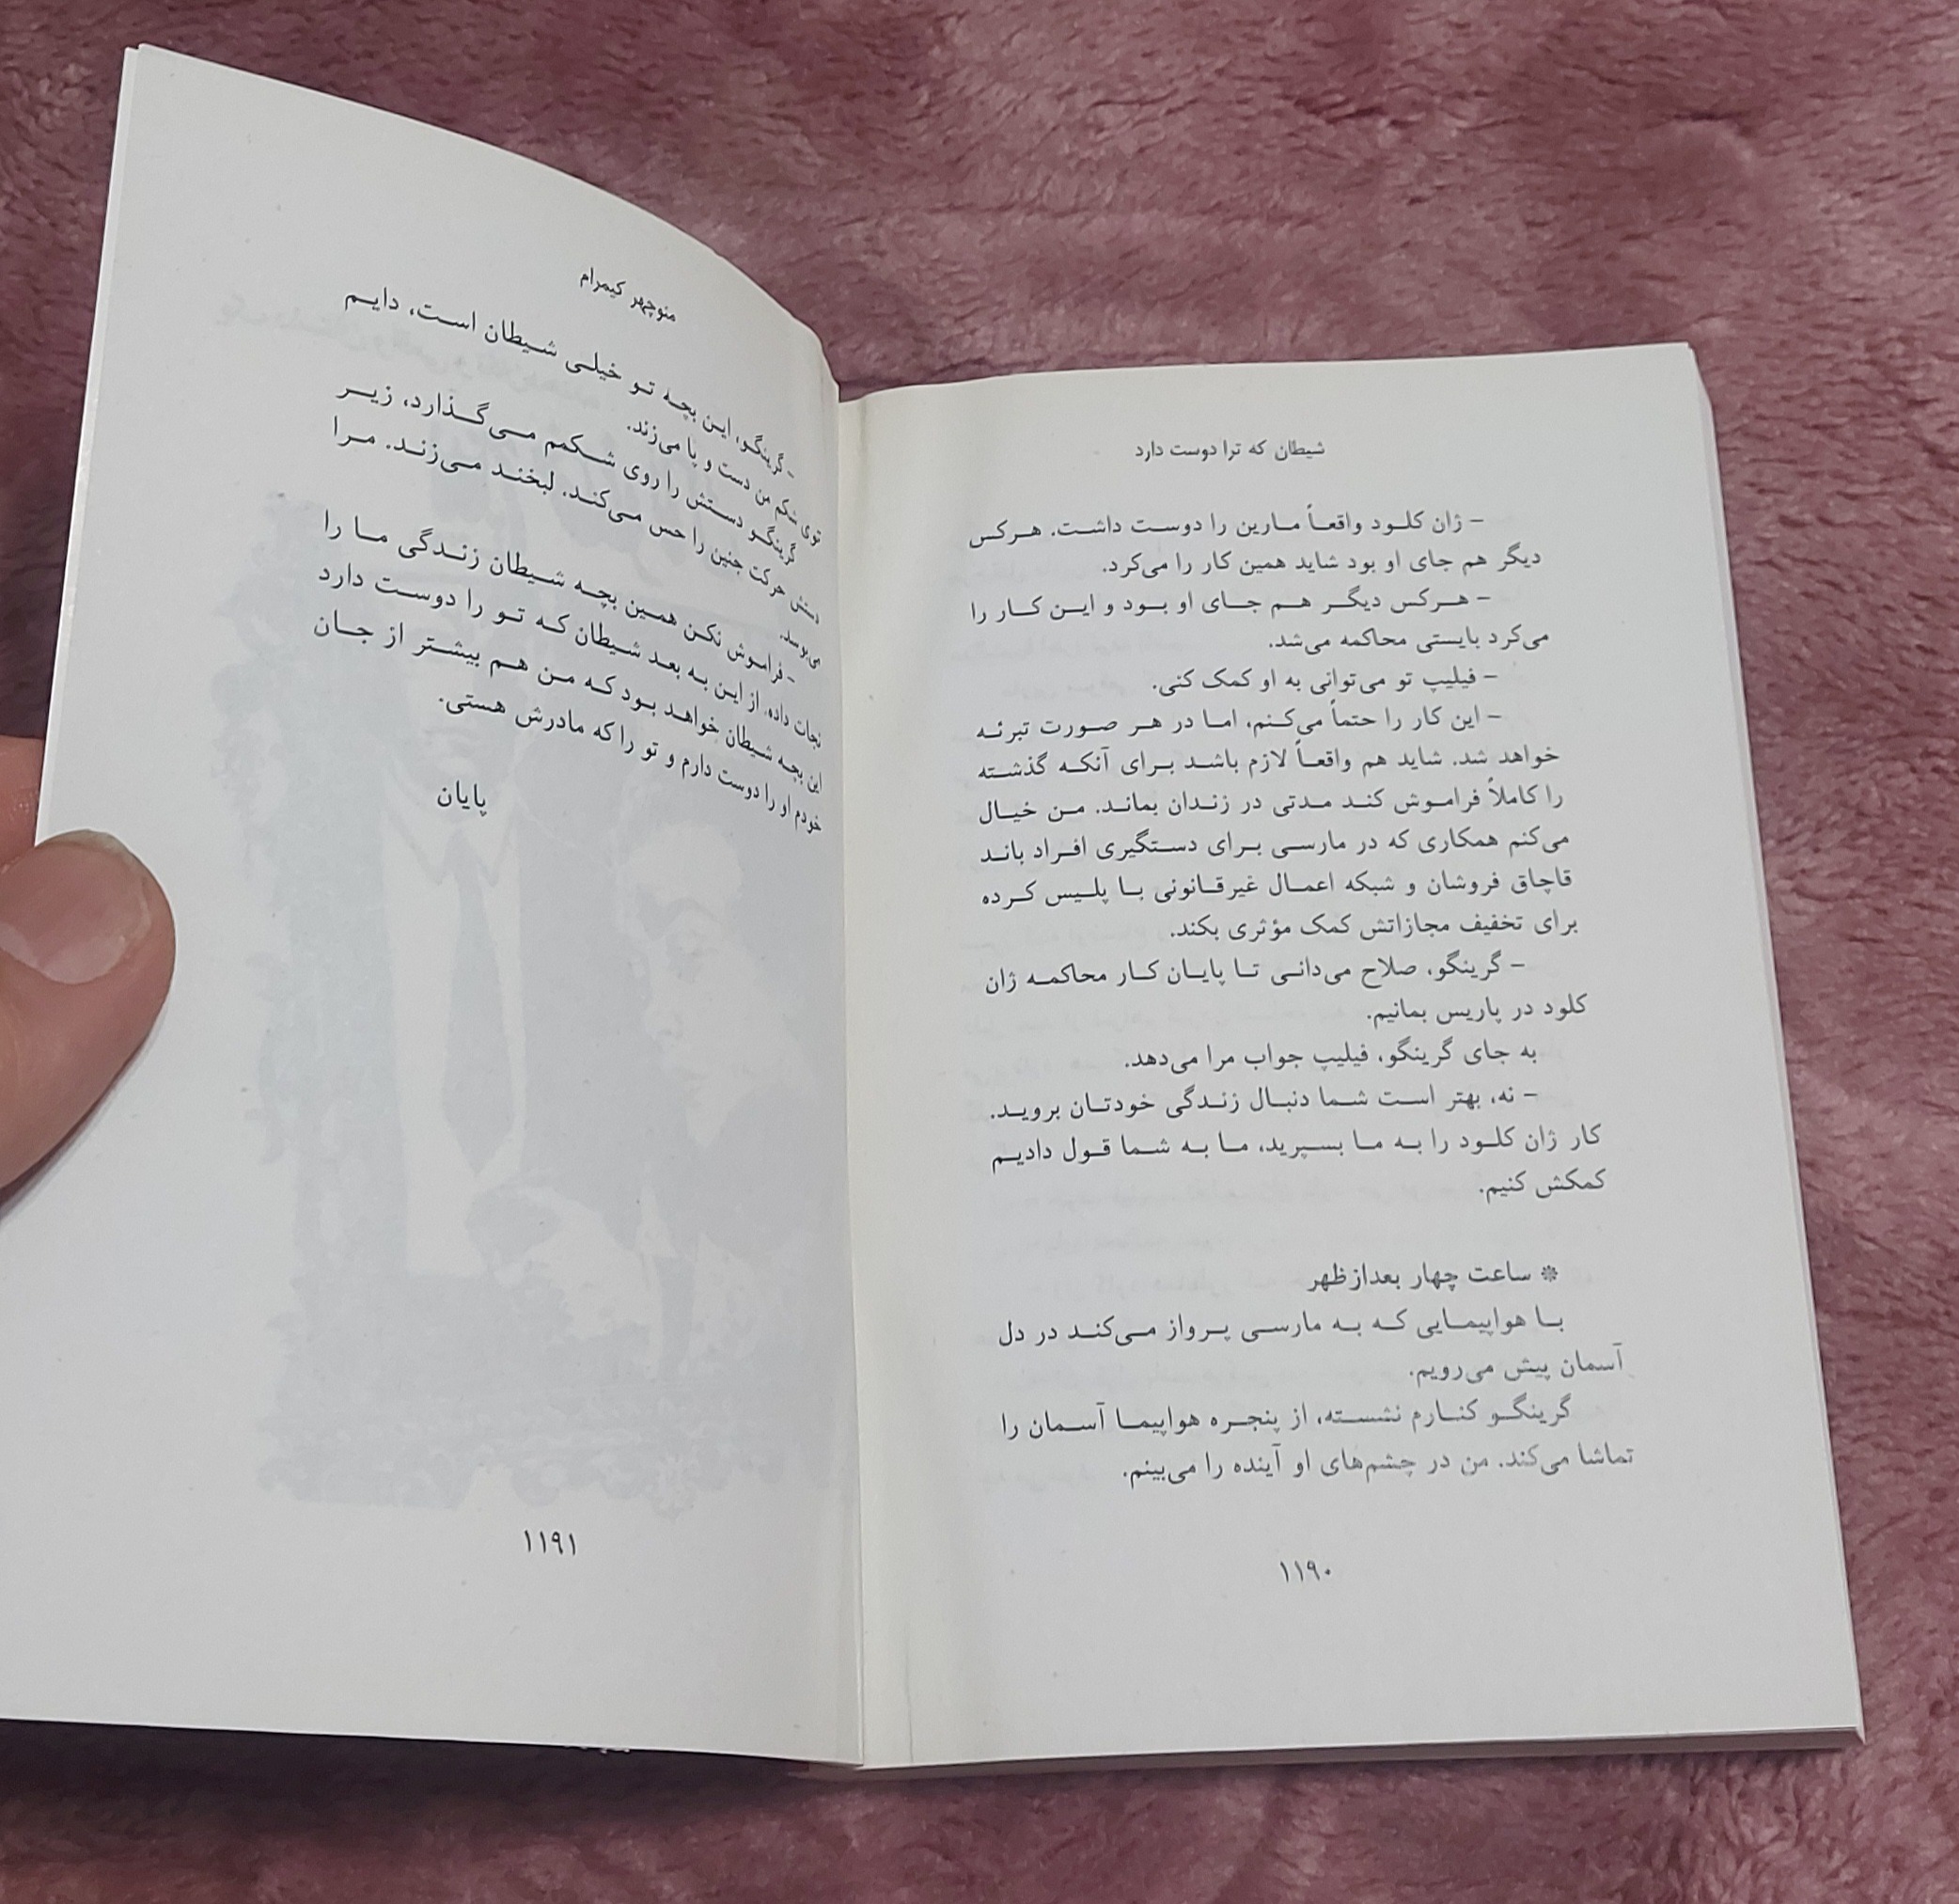 شیطان که ترا دوست دارد
– ژان کلود واقعاً مارین را دوست داشت. هرکس
دیگر هم جای او بود شاید همین کار را می‌کرد.
– هرکس دیگر هم جای او بود و این کار را
می‌کرد بایستی محاکمه می‌شد.
– فیلیپ تو می‌توانی به او کمک کنی.
– این کار را حتماً می‌کنم، اما در هر صورت تبرئه
خواهد شد. شاید هم واقعاً لازم باشد برای آنکه گذشته
را کاملاً فراموش کند مدتی در زندان بماند. من خیال
می‌کنم همکاری که در مارسی برای دستگیری افراد باند
قاچاق فروشان و شبکه اعمال غیرقانونی با پلیس کرده
برای تخفیف مجازاتش کمک مؤثری بکند.
– گرینگو، صلاح می‌دانی تا پایان کار محاکمه ژان
کلود در پاریس بمانیم.
به جای گرینگو، فیلیپ جواب مرا می‌دهد.
– نه، بهتر است شما دنبال زندگی خودتان بروید.
کار ژان کلود را به ما بسپرید، ما به شما قول دادیم
کمکش کنیم.
* ساعت چهار بعدازظهر
با هواپیمایی که به مارسی پرواز می‌کند در دل
آسمان پیش می‌رویم.
گرینگو کنارم نشسته، از پنجره هواپیما آسمان را
تماشا می‌کند. من در چشم‌های او آینده را می‌بینم.
۱۱۹۰
منوچهر کیمرام
– گرینگو، این بچه تو خیلی شیطان است، دایم
توی شکم من دست و پا می‌زند.
گرینگو دستش را روی شکمم می‌گذارد، زیر
دستش حرکت جنین را حس می‌کند. لبخند می‌زند. مرا
می‌بوسد.
– فراموش نکن همین بچه شیطان زندگی ما را
نجات داده. از این به بعد شیطان که تو را دوست دارد
این بچه شیطان خواهد بود که من هم بیشتر از جان
خودم او را دوست دارم و تو را که مادرش هستی.
پایان
۱۱۹۱